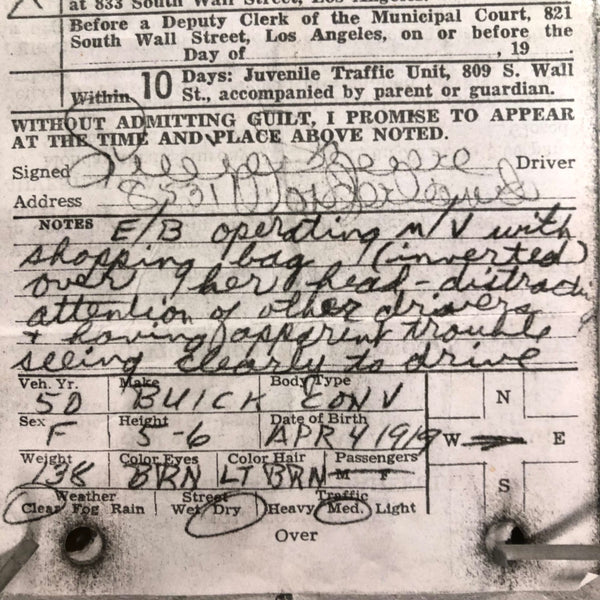 at 833 South Wall Street, Los Angeles.
Before a Deputy Clerk of the Municipal Court, 821
South Wall Street, Los Angeles, on or before the
Day of , 19 .
Within 10 Days: Juvenile Traffic Unit, 809 S. Wall
St., accompanied by parent or guardian.
WITHOUT ADMITTING GUILT, I PROMISE TO APPEAR
AT THE TIME AND PLACE ABOVE NOTED.
Signed Driver
Address 8531
NOTES E/B operating M/V with
shopping bag (inverted)
over her head - distracting
attention of other drivers
+ having apparent trouble
seeing clearly to drive
Veh. Yr. Make Body Type
50 BUICK CONV
Sex Height Date of Birth
F 5-6 APR 4 1919
Weight Color Eyes Color Hair Passengers
138 BRN LT BRN M F
Weather Street Traffic
Clear Fog Rain Wet Dry Heavy Med. Light
N
W E
S
Over